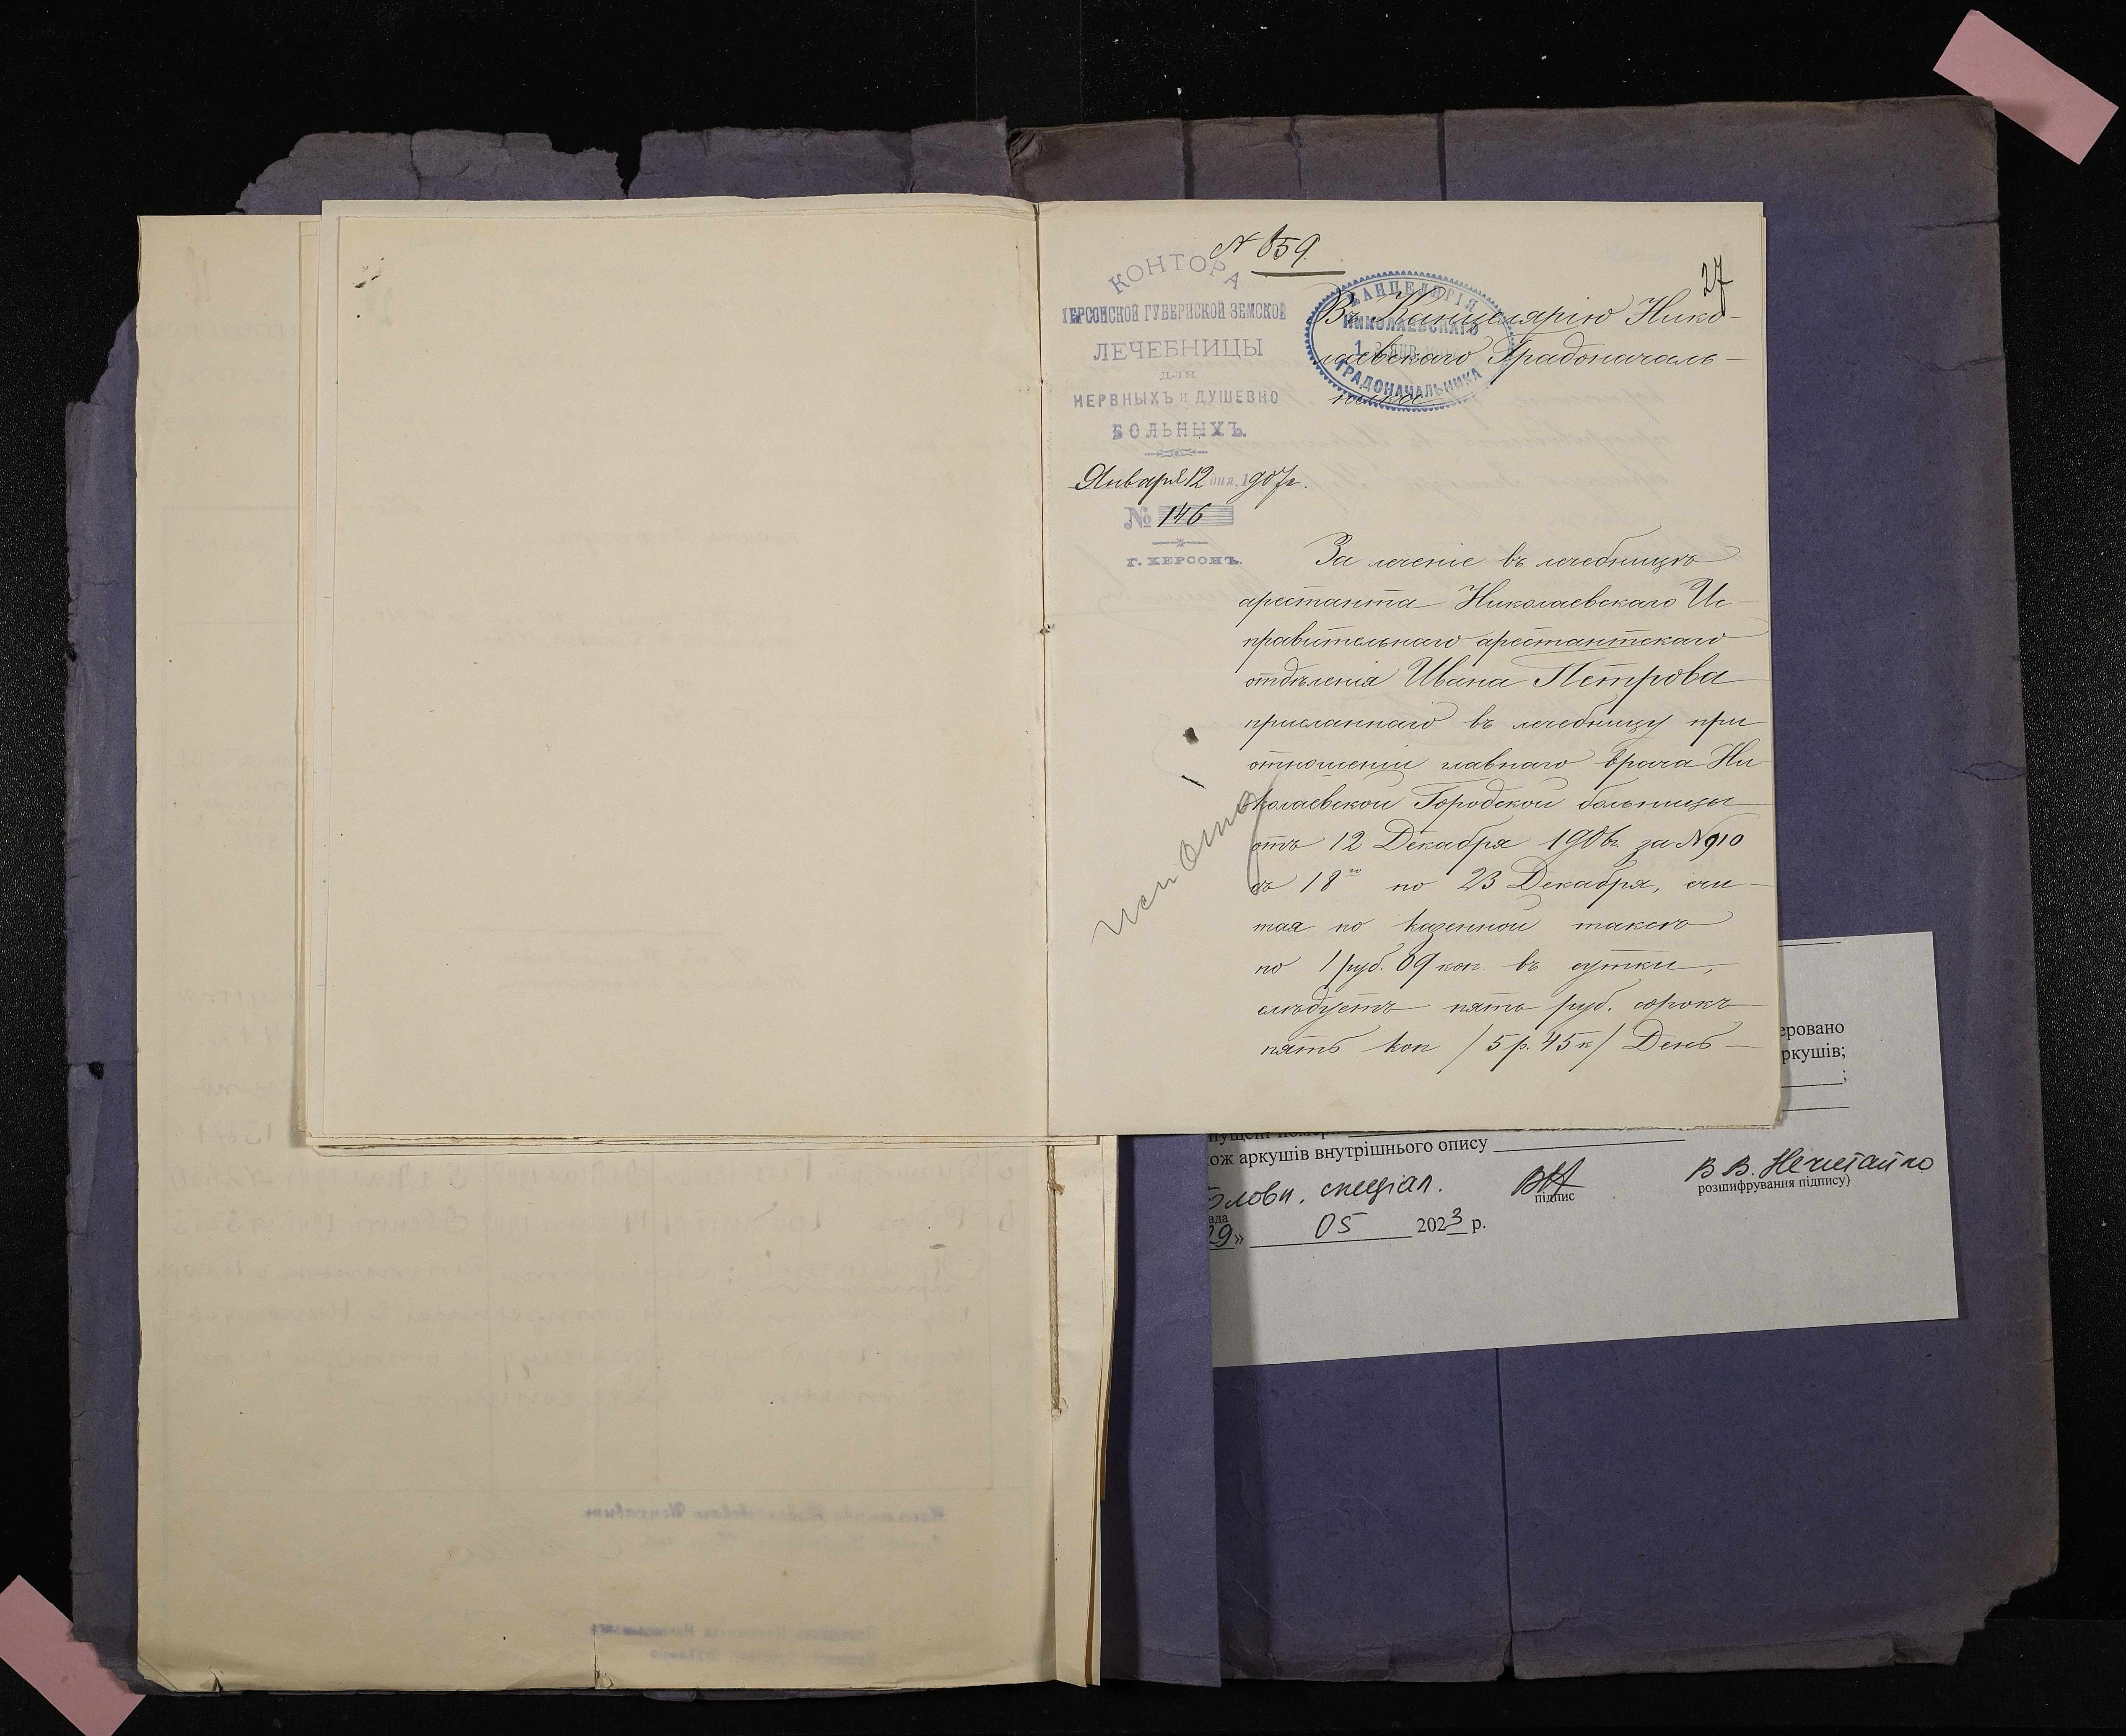 № 659.
27
КОНТОРА
ХЕРСОНСКОЙ ГУБЕРНСКОЙ ЗЕМСКОЙ
ЛЕЧЕБНИЦЫ
для
НЕРВНЫХЪ и ДУШЕВНО
БОЛЬНЫХЪ.
Января 12 дня, 1907 г.
№ 146
Г. ХЕРСОНЪ.
КАНЦЕЛЯРІЯ
НИКОЛАЕВСКАГО
ЯНВ
ГРАДОНАЧАЛЬНИКА
Въ Канцелярію Нико-
лаевскаго Градоначаль-
ника
За леченіе въ лечебницѣ
арестанта Николаевскаго Ис-
правительнаго арестантскаго
отдѣленія Ивана Петрова
присланнаго въ лечебницу при
отношеніи главнаго врача Ни-
колаевской Городской больницы
отъ 12 Декабря 1906 г. за № 910
съ 18го по 23 Декабря, счи-
тая по казенной таксѣ
по 1 руб. 09 коп. въ сутки,
слѣдуетъ пять руб. сорокъ
пять коп /5 р. 45 к/ День-
еровано
ркушів;
ож аркушів внутрішнього опису
Головн. спеціал.
підпис
В В. Нечитайло
розшифрування підпису)
29» 05 2023 р.